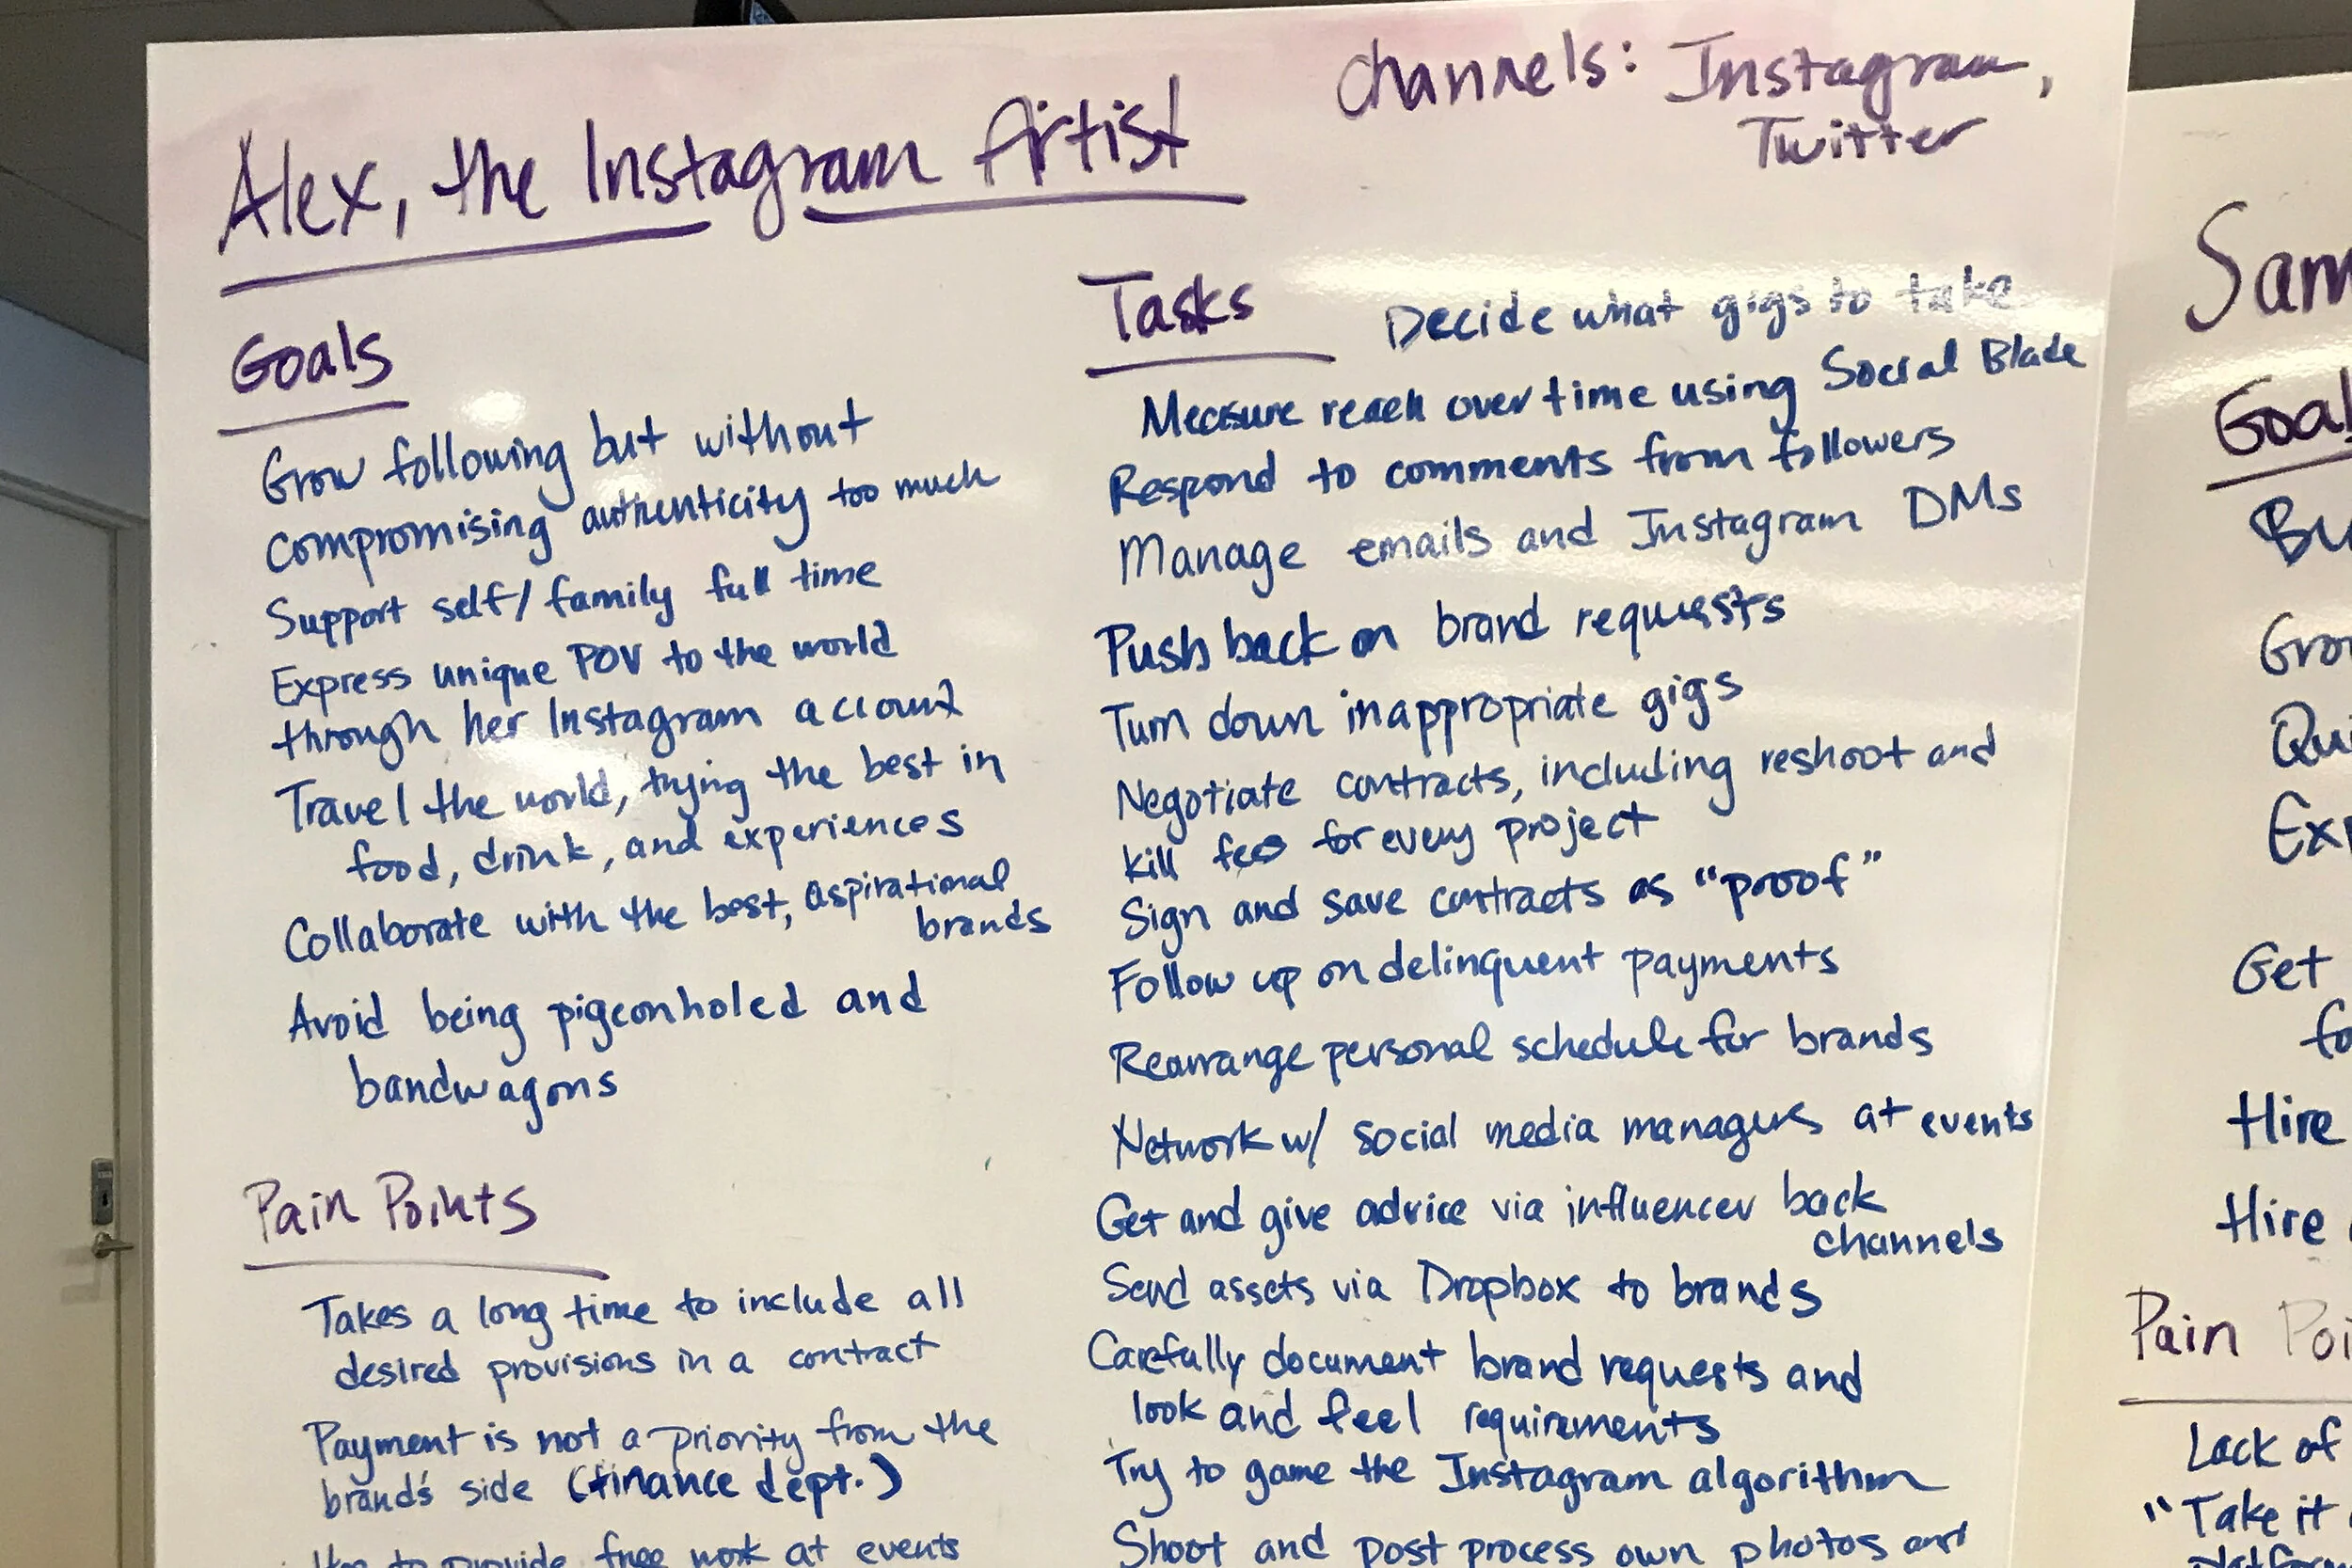 Alex, the Instagram Artist
Channels: Instagram,
Twitter
Goals
Grow following but without
compromising authenticity too much
Support self/family full time
Express unique POV to the world
through her Instagram account
Travel the world, trying the best in
food, drink, and experiences
Collaborate with the best, aspirational
brands
Avoid being pigeonholed and
bandwagons
Pain Points
Takes a long time to include all
desired provisions in a contract
Payment is not a priority from the
brand's side (finance dept.)
to provide free work at events
Tasks
Decide what gigs to take
Measure reach over time using Social Blade
Respond to comments from followers
Manage emails and Instagram DMs
Push back on brand requests
Turn down inappropriate gigs
Negotiate contracts, including reshoot and
kill fees for every project
Sign and save contracts as "proof"
Follow up on delinquent payments
Rearrange personal schedule for brands
Network w/ social media managers at events
Get and give advice via influencer back
channels
Send assets via Dropbox to brands
Carefully document brand requests and
look and feel requirements
Try to game the Instagram algorithm
Shoot and post process own photos and
Sam
Goal
Bu
Gro
Qui
Exp
Get
fo
Hire
Hire
Pain Poi
Lack of
"Take it